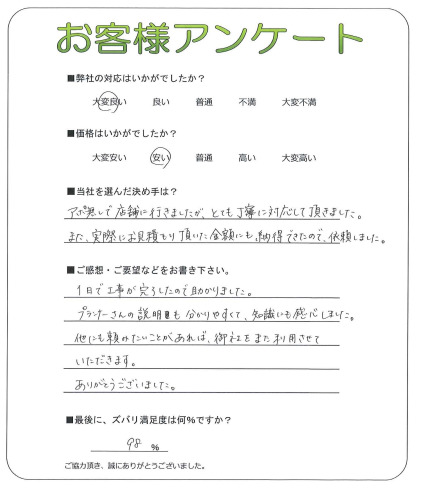 お客様アンケート
■弊社の対応はいかがでしたか?
大変良い 良い 普通 不満 大変不満
■価格はいかがでしたか?
大変安い 安い 普通 高い 大変高い
■当社を選んだ決め手は?
アポ無しで店舗に行きましたが、とても丁寧に対応して頂きました。
また、実際にお見積もり頂いた金額にも、納得できたので、依頼しました。
■ご感想・ご要望などをお書き下さい。
1日で工事が完了したので助かりました。
プランナーさんの説明も分かりやすくて、知識にも感心しました。
他にも頼みたいことがあれば、御社をまた利用させて
いただきます。
ありがとうございました。
■最後に、ズバリ満足度は何%ですか?
98 %
ご協力頂き、誠にありがとうございました。